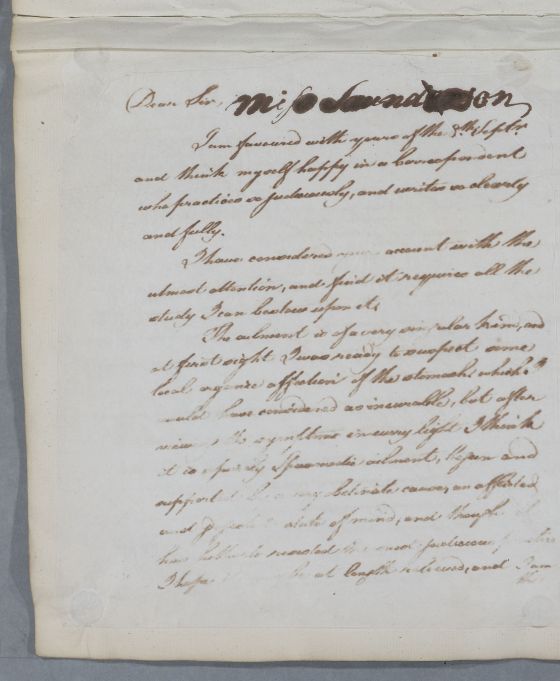 Dear Sir, Miss Saunderson
I am favoured with yours of the 8th Septr
and think myself happy in a Correspondent
who practices so judiciously, and writes so clearly
and fully.
I have considered your account with the
utmost attention, and find it requires all the
study I can bestow upon it.
The ailment is of a very singular kind, and
at first sight I was ready to suspect some
local organic affection of the stomach which I
could have considered as incurable, but after
the symptoms in every light I think
it is a purely Spasmodic ailment, and
supported by a very delicate cause, an afflicted
and state of mind, and though it
has hitherto resisted the most judicious
I hope it at length relieved, and I am